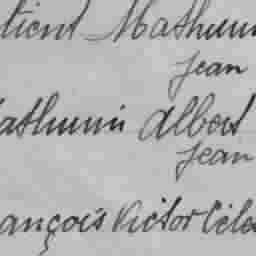 Mathurin
Jean
Mathurin Albert
Jean
ançois Victor Céles